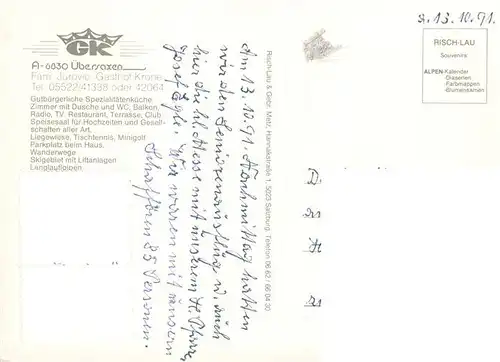 GK
A-6830 Übersaxen
Fam. Jurovic, Gasthof Krone
Tel. 05522/41338 oder 42064
Gutbürgerliche Spezialitätenküche
Zimmer mit Dusche und WC, Balkon,
Radio, TV. Restaurant, Terrasse, Club
Speisesaal für Hochzeiten und Gesell-
schaften aller Art.
Liegewiese, Tischtennis, Minigolf
Parkplatz beim Haus.
Wanderwege
Skigebiet mit Liftanlagen
Langlaufloipen
Am 13.10.91. Nachmittag hatten
wir den Seniorenausflug u. auch
hier die hl. Messe mit unserem H. Pfarrer
Josef Egle. Wir waren mit unsern
85 Personen.
Risch-Lau & Gebr. Metz, Hannakstraße 1, 5023 Salzburg, Telefon 06 62 / 66 04 30
13.10.91.
RISCH-LAU
Souvenirs
ALPEN-Kalender
-Diaserien
-Farbmappen
-Blumenkarten
D.